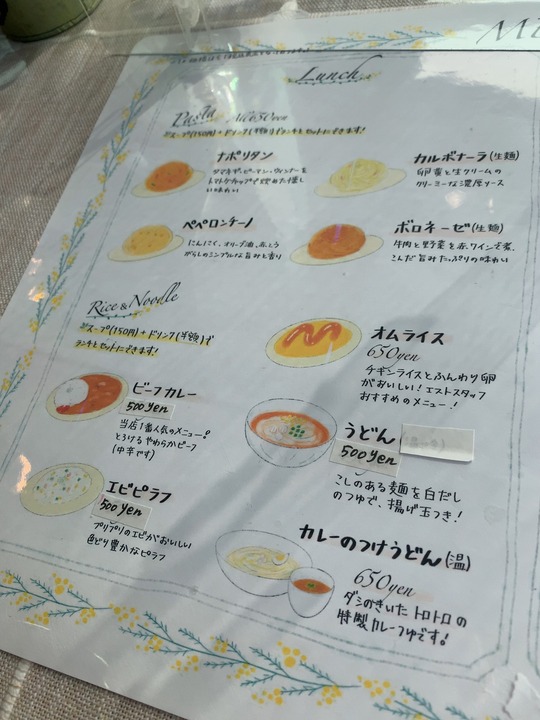 Lunch
Pasta All 650yen
スープ(150円)+ドリンク(半額)でランチとセットにできます!
ナポリタン
タマネギ、ピーマン、ウィンナーを
トマトケチャップで炒めた懐し
い味わい
カルボナーラ(生麺)
卵黄と生クリームの
クリーミーな濃厚ソース
ペペロンチーノ
にんにく、オリーブ油、赤とう
がらしのシンプルな旨みと香り
ボロネーゼ(生麺)
牛肉と野菜を赤ワインで煮
こんだ旨みたっぷりの味わい
Rice & Noodle
スープ(150円)+ドリンク(半額)で
ランチとセットにできます!
オムライス
650yen
チキンライスとふんわり卵
がおいしい!エストスタッフ
おすすめのメニュー!
ビーフカレー
500yen
当店1番人気のメニュー!
とろけるやわらかビーフ
(中辛です)
うどん
500yen
こしのある麺を白だし
のつゆで、揚げ玉つき!
エビピラフ
500yen
プリプリのエビがおいしい
色どり豊かなピラフ
カレーのつけうどん(温)
650yen
ダシのきいたトロトロの
特製カレーつゆです!